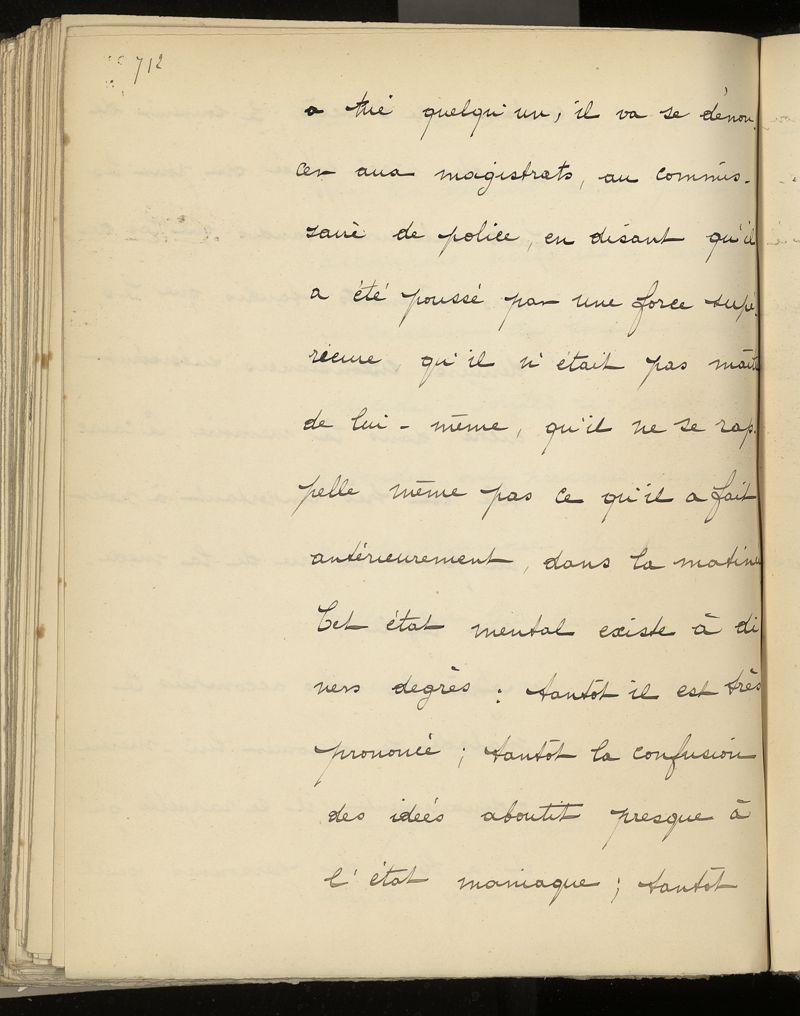 712
a tué quelqu'un, il va se dénon-
cer aux magistrats, au commis-
saire de police, en disant qu'il
a été poussé par une force supé-
rieure qu'il n'était pas maît
de lui-même, qu'il ne se rap-
pelle même pas ce qu'il a fait
antérieurement, dans la matiné
Cet état mental existe à di
vers degrès : tantôt il est très
prononcé ; tantôt la confusion
des ideés aboutit presque à
l'état maniaque ; tantôt